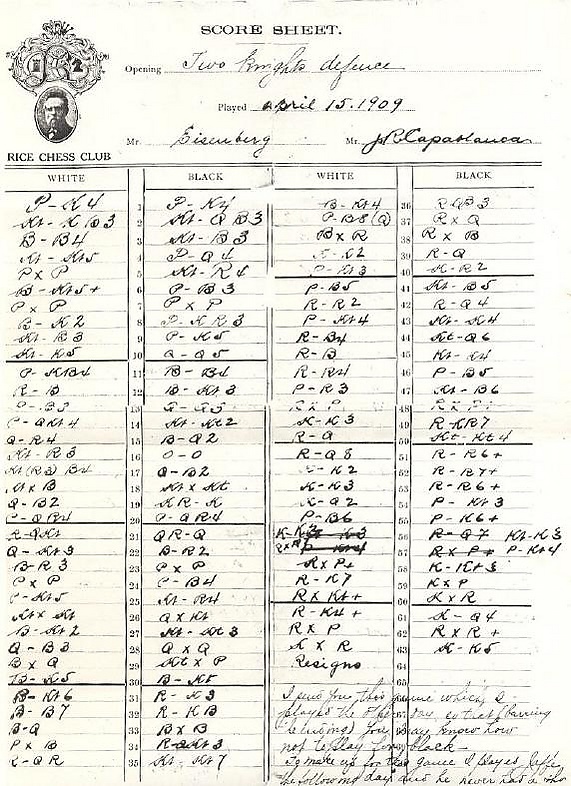 SCORE SHEET.
Opening Two Knights defence
Played april 15. 1909
RICE CHESS CLUB
Mr. Eisenberg Mr. JR Capablanca
WHITE BLACK WHITE BLACK
P-K4 1 P-K4
Kt-KB3 2 Kt-QB3
B-B4 3 Kt-B3
Kt-Kt5 4 P-Q4
PxP 5 Kt-R4
B-Kt5+ 6 P-B3
PxP 7 PxP
B-K2 8 P-KR3
Kt-B3 9 P-K5
Kt-K5 10 Q-Q5
P-KB4 11 B-B4
R-B 12 B-Kt3
P-B3 13
P-QKt4 14 Kt-Kt2
Q-R4 15 B-Q2
Kt-R3 16 O-O
Kt(R3) B4 17 Q-B2
KtxB 18 KtxKt
Q-B2 19 KR-K
20 P-QR4
21 QR-Q
Q-Kt3 22 B-R2
B-R3 23 PxP
PxP 24 P-B4
P-Kt5 25 Kt-R4
KtxKt 26 QxKt
B-Kt2 27 Kt-Kt3
Q-B3 28 QxQ
BxQ 29 KtxP
B-K5 30
B-Kt6 31 R-K3
B-B7 32 R-KB
B-Q 33 BxB
PxB 34
R-QR 35 Kt-Kt7
B-Kt4 36
P-B8(Q) 37 RxQ
BxR 38 RxB
K-K2 39 R-Q
P-Kt3 40 K-R2
P-B5 41 Kt-B5
R-R2 42 R-Q4
P-Kt4 43 Kt-K4
R-B4 44 Kt-Q6
R-B 45 Kt-K4
R-R4 46 P-B5
P-R3 47 Kt-B6
RxP 48
K-K3 49 R-KR7
R-Q 50 Kt-Kt4
R-Q8 51 R-R6+
K-K2 52 R-R7+
K-K3 53 R-R6+
K-Q2 54 P-Kt3
P-B6 55 P-K6+
56 R-Q7 Kt-K3
57 RxP+ P-Kt4
RxP+ 58 K-Kt3
R-K7 59 KxP
RxKt+ 60 KxR
R-K4+ 61 K-Q4
RxP 62 RxR+
KxR 63 K-K5
Resigns 64
65
I send you this game which I
played the other day, so that, barring
you may know how
not to play for black—
To make up for this game I played
the following day and he never had a